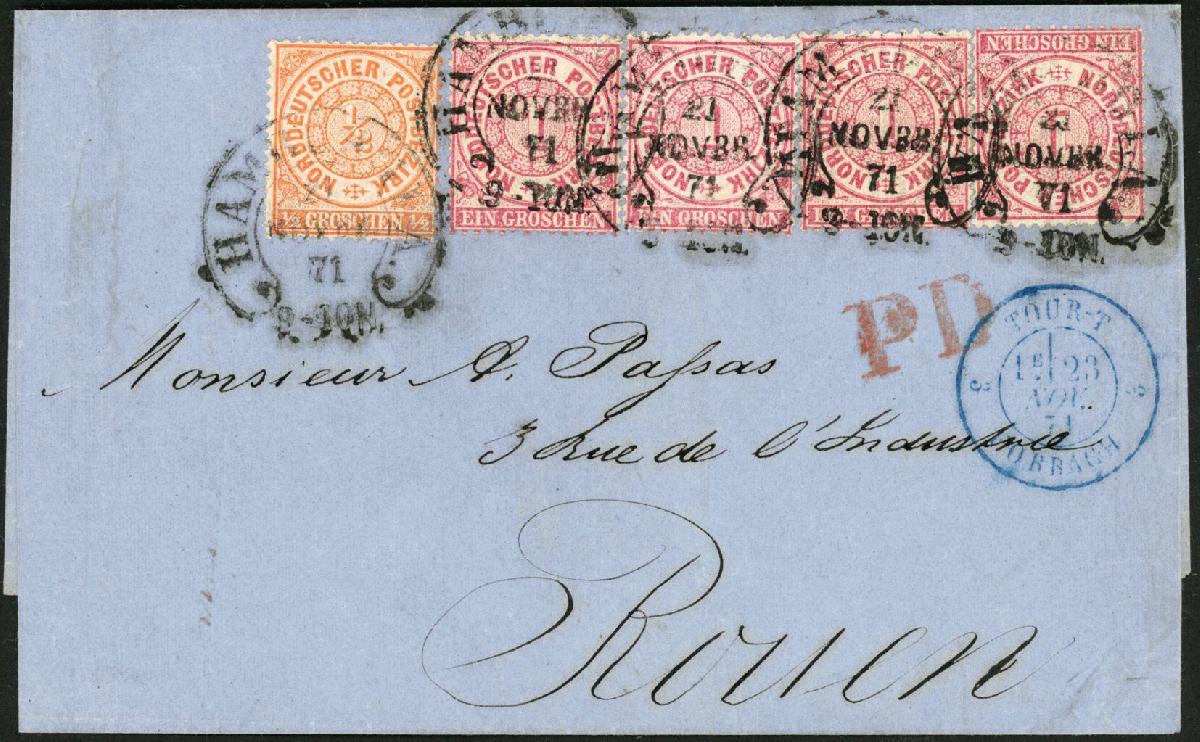 NORDDEUTSCHER POSTBEZIRK
1/2
1/2 GROSCHEN 1/2
HAM
71
9-10N.
NORDDEUTSCHER POSTBEZIRK
1
EIN GROSCHEN
HAMBURG
NOVBR
71
9-10N
NORDDEUTSCHER POSTBEZIRK
1
EIN GROSCHEN
21
NOVBR
71
9-10N.
NORDDEUTSCHER POSTBEZIRK
1
EIN GROSCHEN
21
NOVBR
71
9-10N.
EIN GROSCHEN
NORDDEUTSCHER POSTBEZIRK
1
21
NOVBR
71
9-10N.
PD
TOUR-T
1E 23
NOV.
71
FORBACH
3 3
Monsieur A. Passas
3 Rue de l'Industrie
Rouen